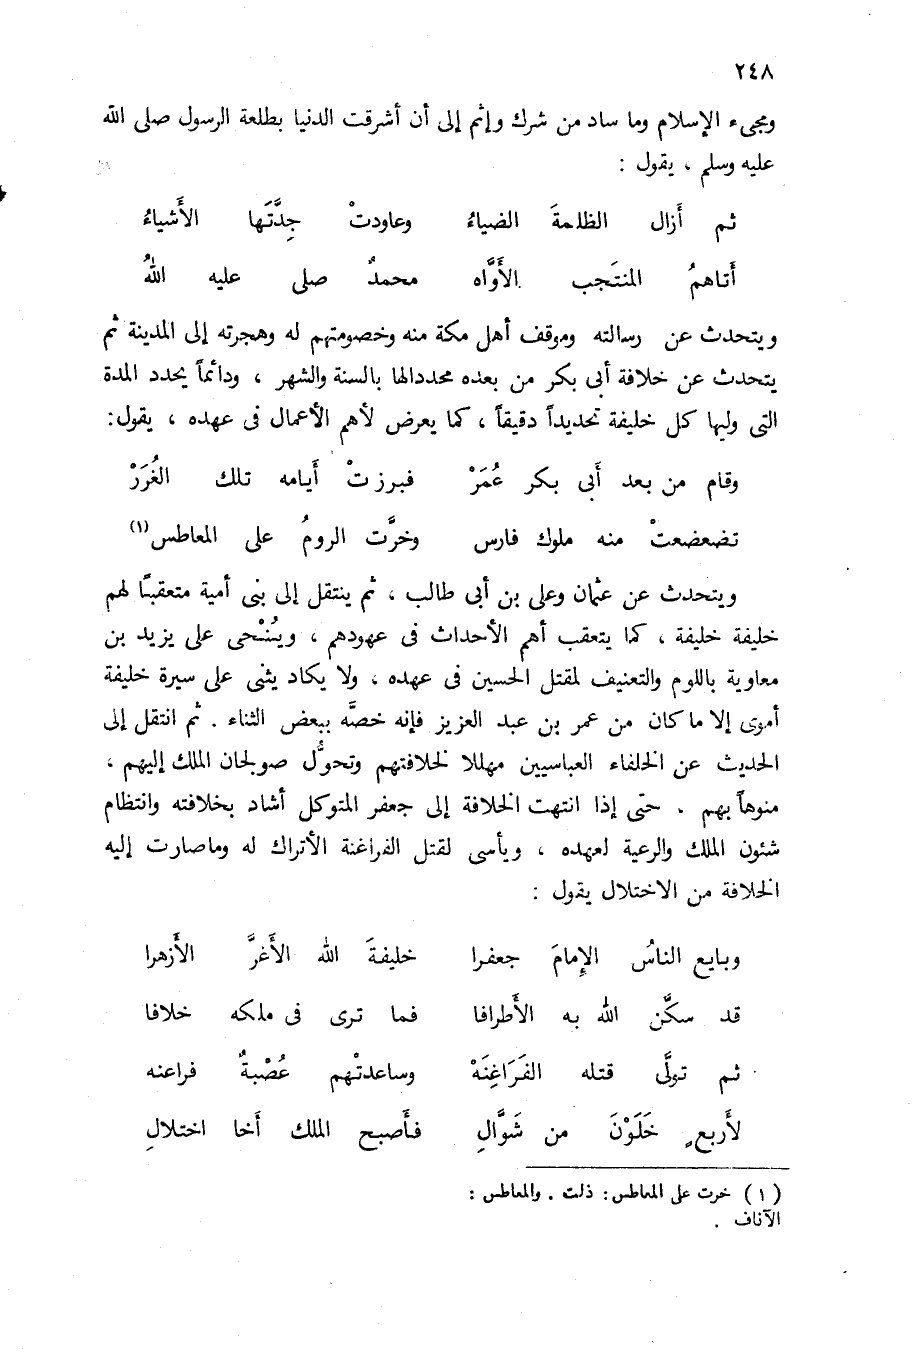 ٢٤٨
ومجىء الإسلام وما ساد من شرك وإثم إلى أن أشرقت الدنيا بطلعة الرسول صلى الله
عليه وسلم ، يقول :
ثم أَزال الظلمةَ الضياءُ وعاودتْ جِدَّتَها الأَشياءُ
أَتاهمُ المنتَجب الأَوَّاه محمدٌ صلى عليه اللهُ
ويتحدث عن رسالته وموقف أهل مكة منه وخصومتهم له وهجرته إلى المدينة ثم
يتحدث عن خلافة أبى بكر من بعده محددالها بالسنة والشهر ، ودائماً يحدد المدة
التى وليها كل خليفة تحديداً دقيقاً ، كما يعرض لأهم الأعمال فى عهده ، يقول:
وقام من بعد أَبى بكر عُمَرْ فبرزتْ أَيامه تلك الغُرَرْ
تضعضعتْ منه ملوك فارس وخرَّت الرومُ على المعاطس(١)
ويتحدث عن عثمان وعلى بن أبى طالب ، ثم ينتقل إلى بنى أمية متعقبًا لهم
خليفة خليفة ، كما يتعقب أهم الأحداث فى عهودهم ، ويُنْحى على يزيد بن
معاوية باللوم والتعنيف لمقتل الحسين فى عهده ، ولا يكاد يثنى على سيرة خليفة
أموى إلا ما كان من عمر بن عبد العزيز فإنه خصَّه ببعض الثناء . ثم انتقل إلى
الحديث عن الخلفاء العباسيين مهللا لخلافتهم وتحوُّل صولجان الملك إليهم ،
منوهاً بهم . حتى إذا انتهت الخلافة إلى جعفر المتوكل أشاد بخلافته وانتظام
شئون الملك والرعية لعهده ، ويأسى لقتل الفراغنة الأتراك له وماصارت إليه
الخلافة من الاختلال يقول :
وبايع الناسُ الإمامَ جعفرا خليفةَ الله الأَغرَّ الأَزهرا
قد سكَّن الله به الأَطرافا فما ترى فى ملكه خلافا
ثم تولَّى قتله الفَرَاغِنَهْ وساعدتْهم عُصْبةٌ فراعنه
لأَربعٍ خَلَوْنَ من شَوَّالِ فأَصبح الملك أَخا اختلالِ
(١) خرت على المعاطس : ذلت . والمعاطس :
الآناف .